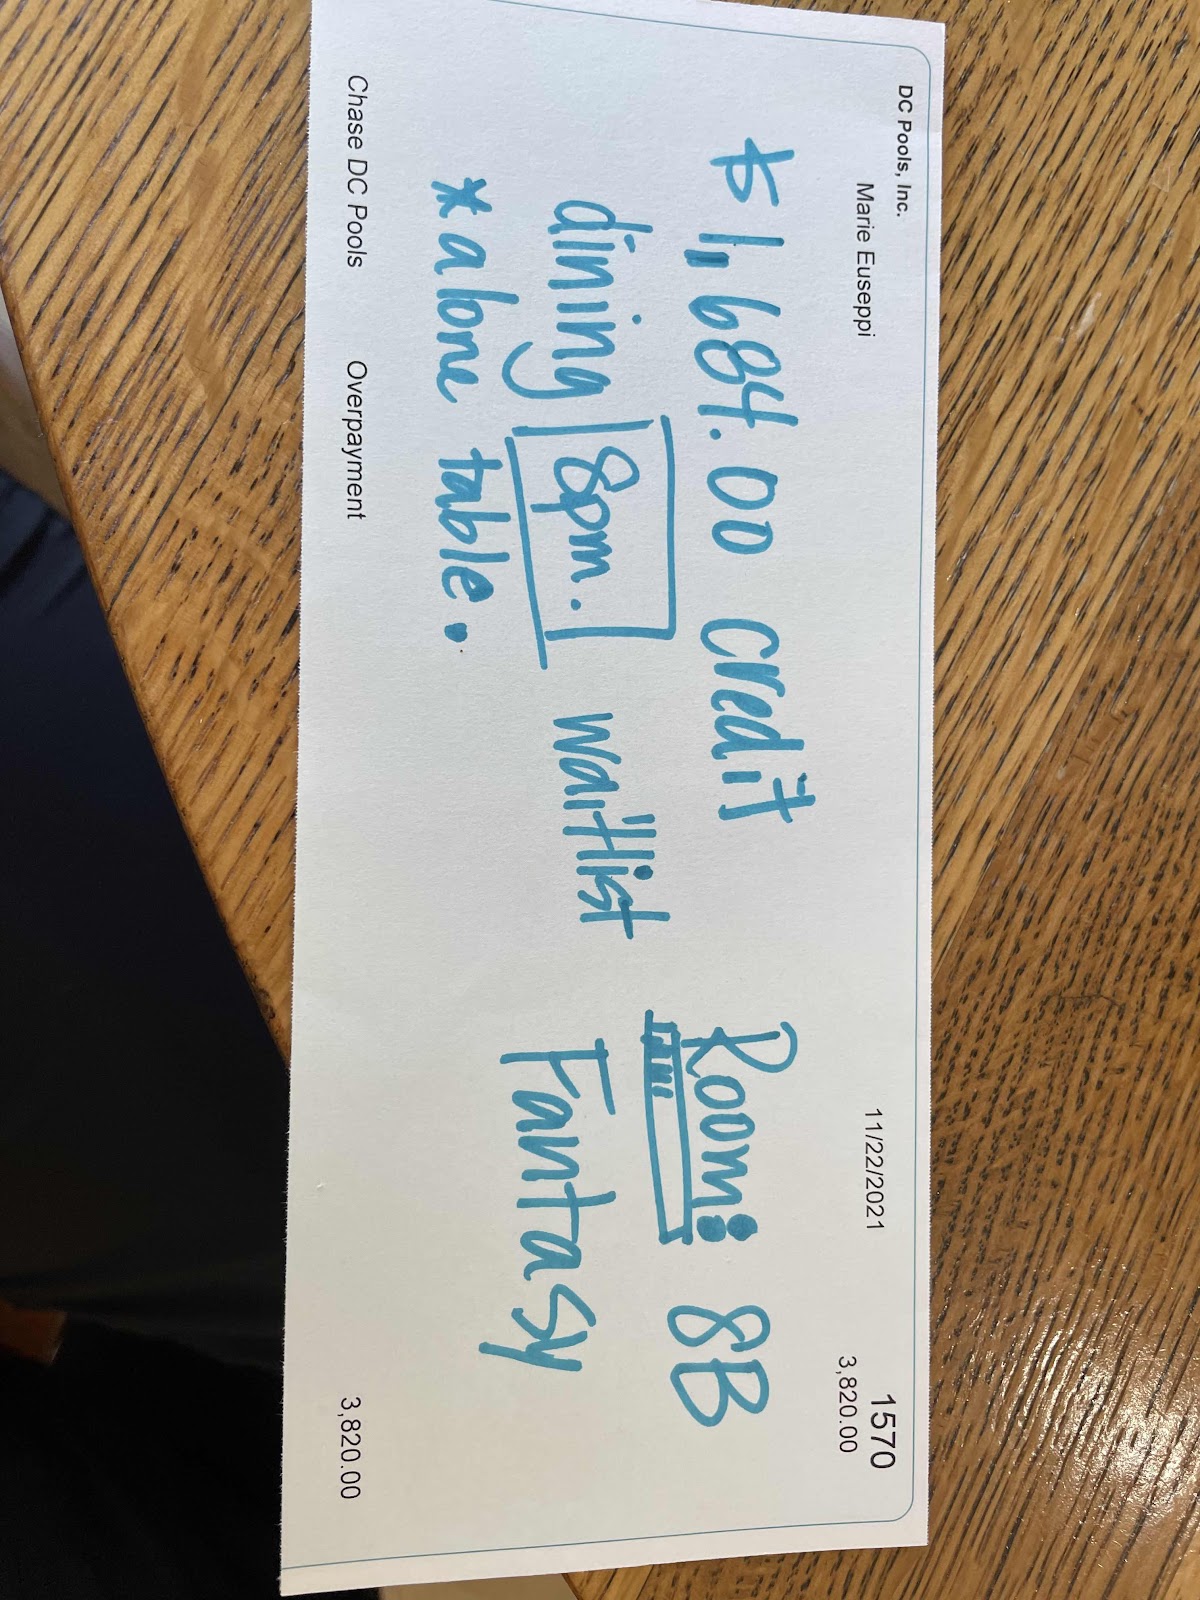 DC Pools, Inc.
1570
Marie Euseppi
11/22/2021
3,820.00
$1,684.00 credit
Room: 8B
dining 8pm. waitlist
Fantasy
* alone table.
Chase DC Pools
Overpayment
3,820.00